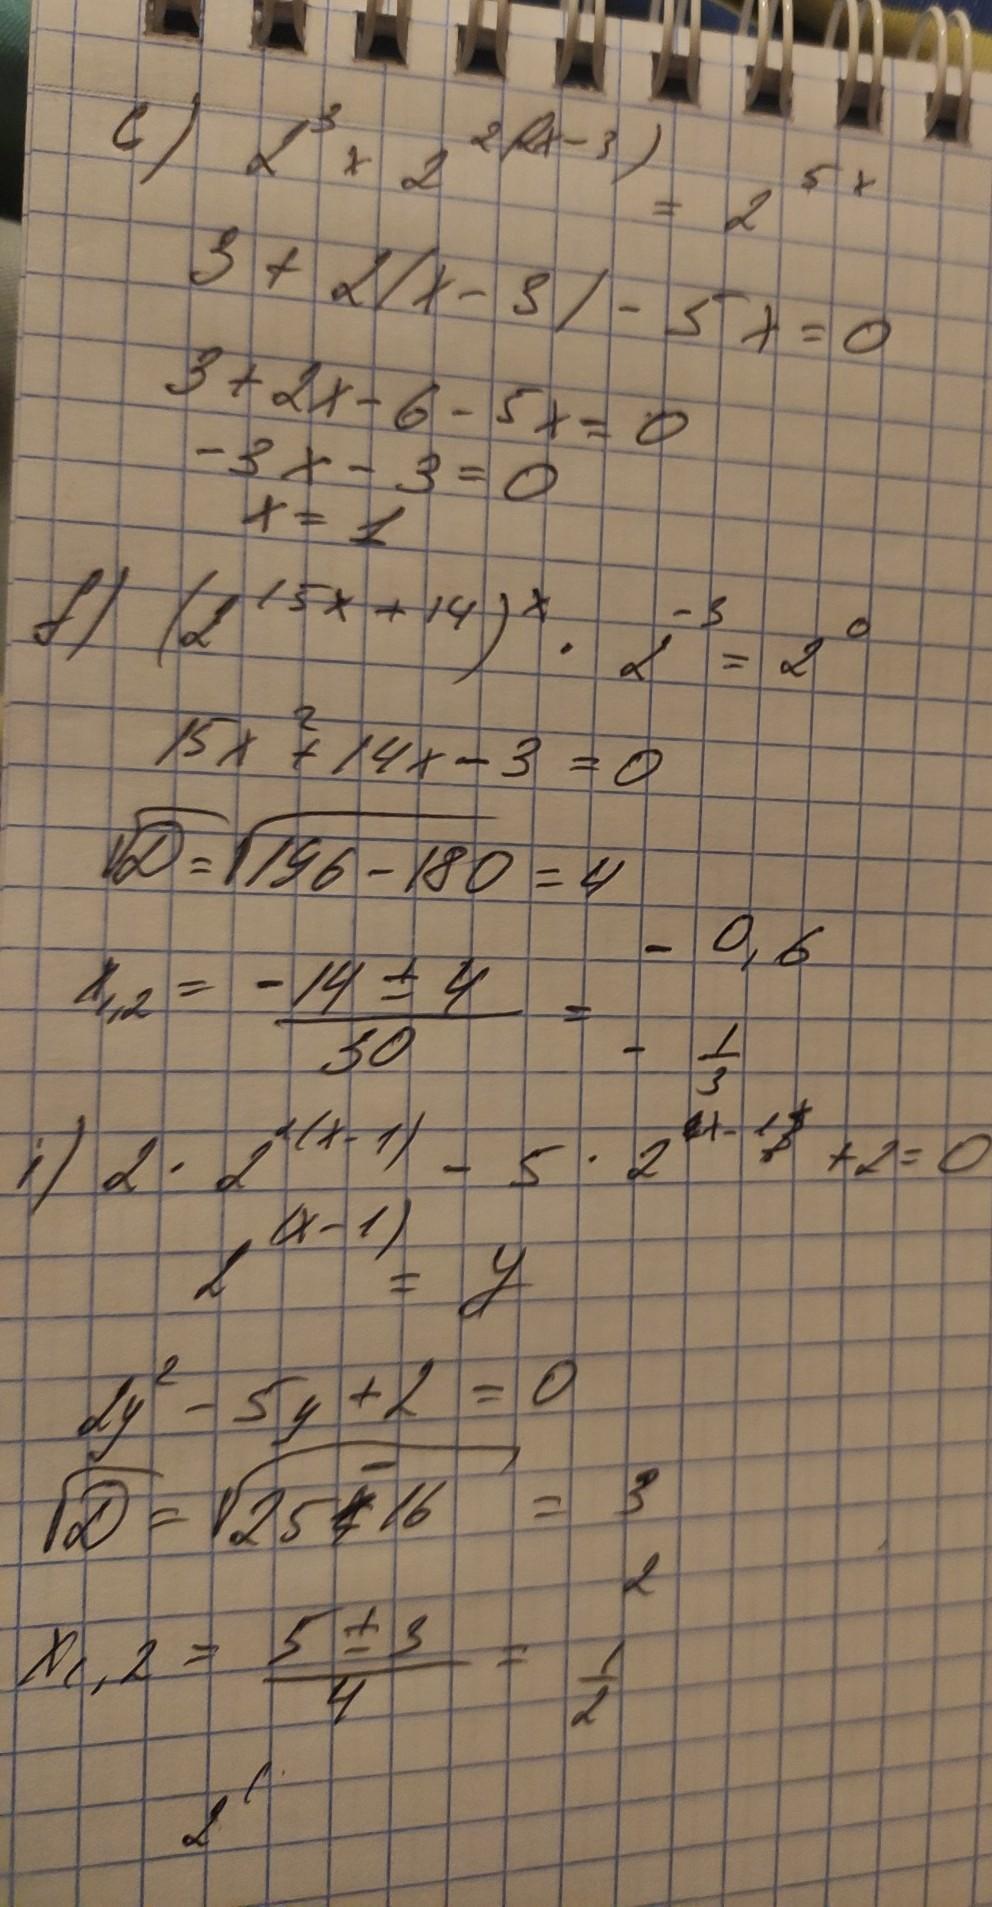 c) 2³ × 2^(2(x-3)) = 2^(5x)
3 + 2(x - 3) - 5x = 0
3 + 2x - 6 - 5x = 0
-3x - 3 = 0
x = 1
f) (2^(15x + 14))^x · 2^(-3) = 2^0
15x² + 14x - 3 = 0
√D = √(196 - 180) = 4
x₁,₂ = (-14 ± 4)/30 = - 0,6
- 1/3
i) 2 · 2^(2(x-1)) - 5 · 2^(x-1) + 2 = 0
2^(x-1) = y
2y² - 5y + 2 = 0
√D = √(25 - 16) = 3
x₁,₂ = (5 ± 3)/4 = 2
1/2
2^(